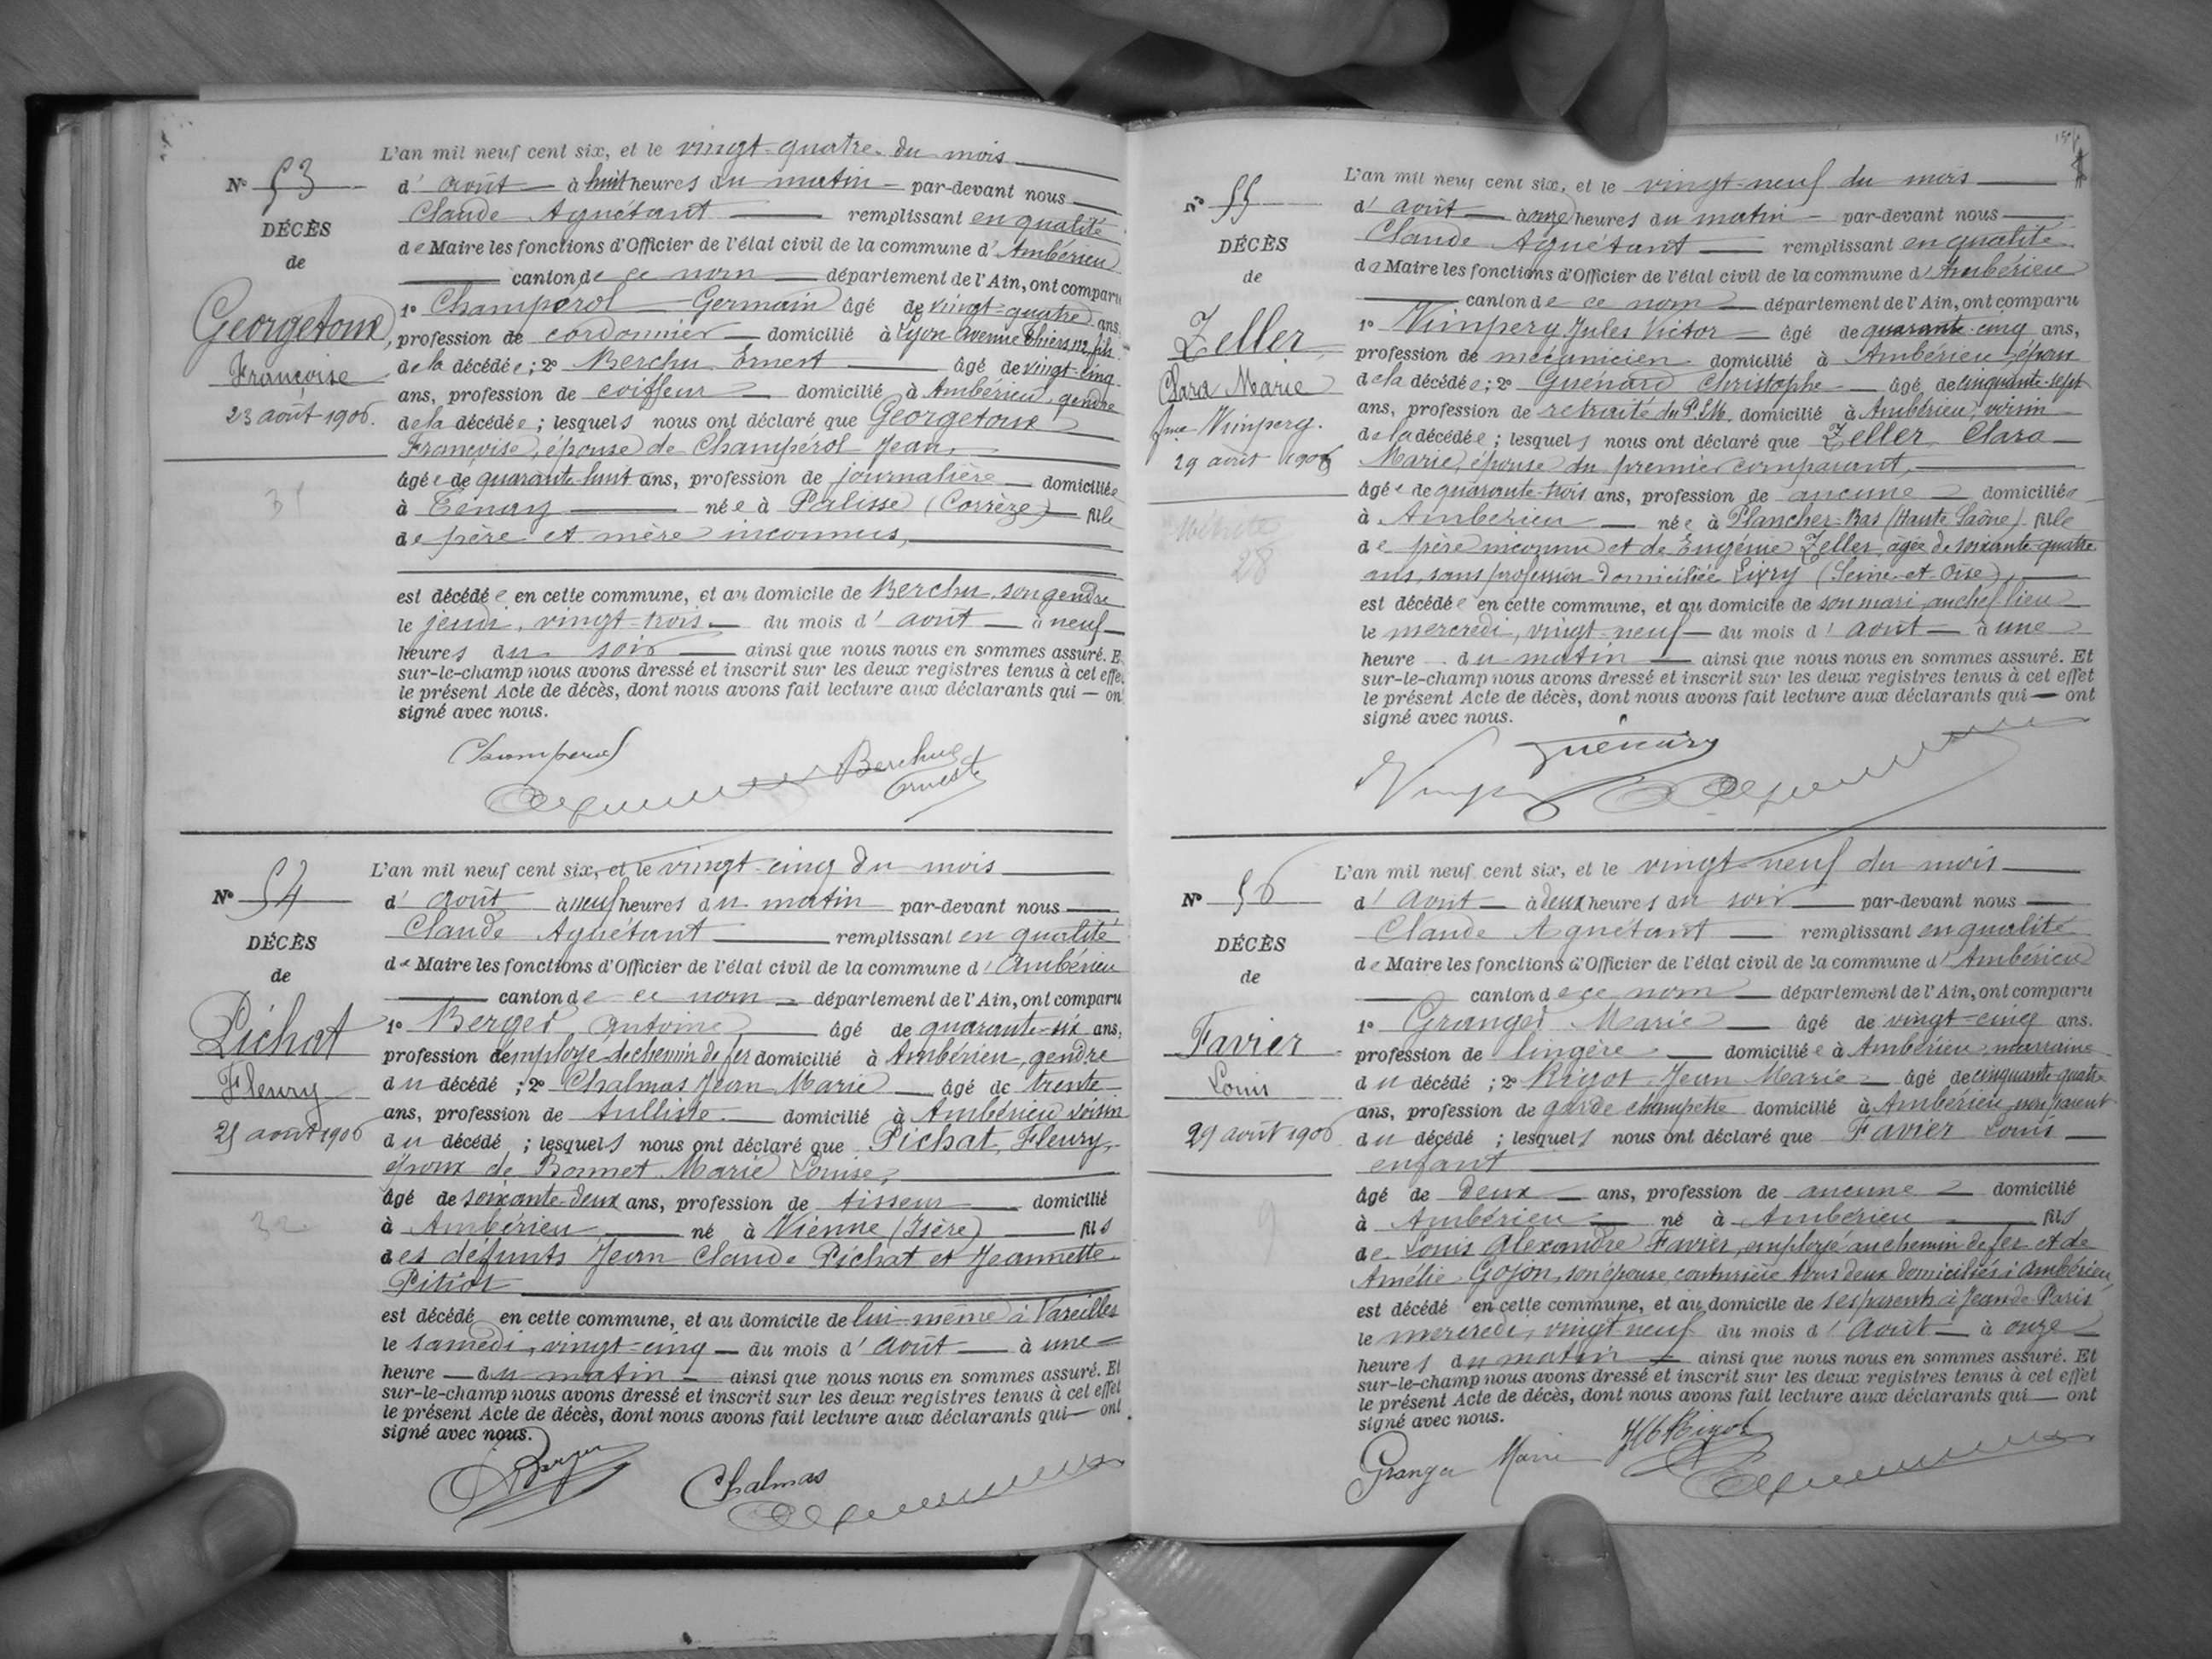 L'an mil neuf cent six, et le vingt-quatre du mois
N° 53
d'août à huit heures du matin par-devant nous
Claude Aguétant remplissant en qualité
DÉCÈS
de Maire les fonctions d'Officier de l'état civil de la commune d'Ambérieu
de
canton de ce nom département de l'Ain, ont comparu
1° Champerol Germain âgé de vingt-quatre ans,
Georgetoux
profession de cordonnier domicilié à Lyon avenue Thiers 112, fils
de la décédée ; 2° Berchu Ernest âgé de vingt-cinq
Françoise
ans, profession de coiffeur domicilié à Ambérieu, gendre
23 août 1906.
de la décédée ; lesquels nous ont déclaré que Georgetoux
Françoise, épouse de Champérol Jean,
âgée de quarante-huit ans, profession de journalière domiciliée
31
à Tenay née à Palisse (Corrèze) fille
de père et mère inconnus,
est décédée en cette commune, et au domicile de Berchu, son gendre
le jeudi, vingt-trois du mois d'août à neuf
heures du soir ainsi que nous nous en sommes assuré. E
sur-le-champ nous avons dressé et inscrit sur les deux registres tenus à cet effet
le présent Acte de décès, dont nous avons fait lecture aux déclarants qui — on
signé avec nous.
Champerol
Berchu
Ernest
L'an mil neuf cent six, et le vingt-cinq du mois
N° 54
d'août à neuf heures du matin par-devant nous
Claude Aguétant remplissant en qualité
DÉCÈS
de Maire les fonctions d'Officier de l'état civil de la commune d'Ambérieu
de
canton de ce nom département de l'Ain, ont comparu
Pichat
1° Berger Antoine âgé de quarante-six ans,
profession d'employé de chemin de fer domicilié à Ambérieu, gendre
Fleury
du décédé ; 2° Chalmas Jean Marie âgé de trente
ans, profession de tulliste domicilié à Ambérieu voisin
25 août 1906
du décédé ; lesquels nous ont déclaré que Pichat, Fleury,
époux de Bonnet Marie Louise,
âgé de soixante-deux ans, profession de tisseur domicilié
32
à Ambérieu né à Vienne (Isère) fils
des défunts Jean Claude Pichat et Jeannette
Pitiot
est décédé en cette commune, et au domicile de lui-même à Vareilles
le samedi, vingt-cinq du mois d'août à une
heure du matin ainsi que nous nous en sommes assuré. Et
sur-le-champ nous avons dressé et inscrit sur les deux registres tenus à cet effet
le présent Acte de décès, dont nous avons fait lecture aux déclarants qui — ont
signé avec nous.
Berger
Chalmas
L'an mil neuf cent six, et le vingt-neuf du mois
N° 55
d'août à onze heures du matin par-devant nous
Claude Aguétant remplissant en qualité
DÉCÈS
de Maire les fonctions d'Officier de l'état civil de la commune d'Ambérieu
de
canton de ce nom département de l'Ain, ont comparu
Zeller
1° Wimperg Jules Victor âgé de quarante-cinq ans,
profession de mécanicien domicilié à Ambérieu, époux
Clara Marie
de la décédée ; 2° Guénard Christophe âgé de cinquante-sept
fme Wimperg.
ans, profession de retraité du P.L.M. domicilié à Ambérieu, voisin
de la décédée ; lesquels nous ont déclaré que Zeller Clara
29 août 1906
Marie, épouse du premier comparant,
âgée de quarante-trois ans, profession de aucune domiciliée
à Ambérieu née à Plancher-Bas (Haute Saône) fille
28
de père inconnu et de Eugénie Zeller, âgée de soixante-quatre
ans, sans profession domiciliée Livry (Seine-et-Oise),
est décédée en cette commune, et au domicile de son mari au chef-lieu
le mercredi, vingt-neuf du mois d'août à une
heure du matin ainsi que nous nous en sommes assuré. Et
sur-le-champ nous avons dressé et inscrit sur les deux registres tenus à cet effet
le présent Acte de décès, dont nous avons fait lecture aux déclarants qui — ont
signé avec nous.
Guénard
L'an mil neuf cent six, et le vingt-neuf du mois
N° 56
d'août à deux heures du soir par-devant nous
Claude Aguétant remplissant en qualité
DÉCÈS
de Maire les fonctions d'Officier de l'état civil de la commune d'Ambérieu
de
canton de ce nom département de l'Ain, ont comparu
Favier
1° Granger Marie âgé de vingt-cinq ans.
profession de lingère domiciliée à Ambérieu, marraine
Louis
du décédé ; 2° Rigot Jean Marie âgé de cinquante-quatre
ans, profession de garde champêtre domicilié à Ambérieu, non parent
29 août 1906
du décédé ; lesquels nous ont déclaré que Favier Louis
enfant
âgé de deux ans, profession de aucune domicilié
9
à Ambérieu né à Ambérieu fils
de Louis Alexandre Favier, employé au chemin de fer et de
Amélie Gojon, son épouse couturière tous deux domiciliés à Ambérieu
est décédé en cette commune, et au domicile de ses parents à Jean de Paris
le mercredi, vingt-neuf du mois d'août à onze
heures du matin ainsi que nous nous en sommes assuré. Et
sur-le-champ nous avons dressé et inscrit sur les deux registres tenus à cet effet
le présent Acte de décès, dont nous avons fait lecture aux déclarants qui — ont
signé avec nous.
Granger Marie
Rigot